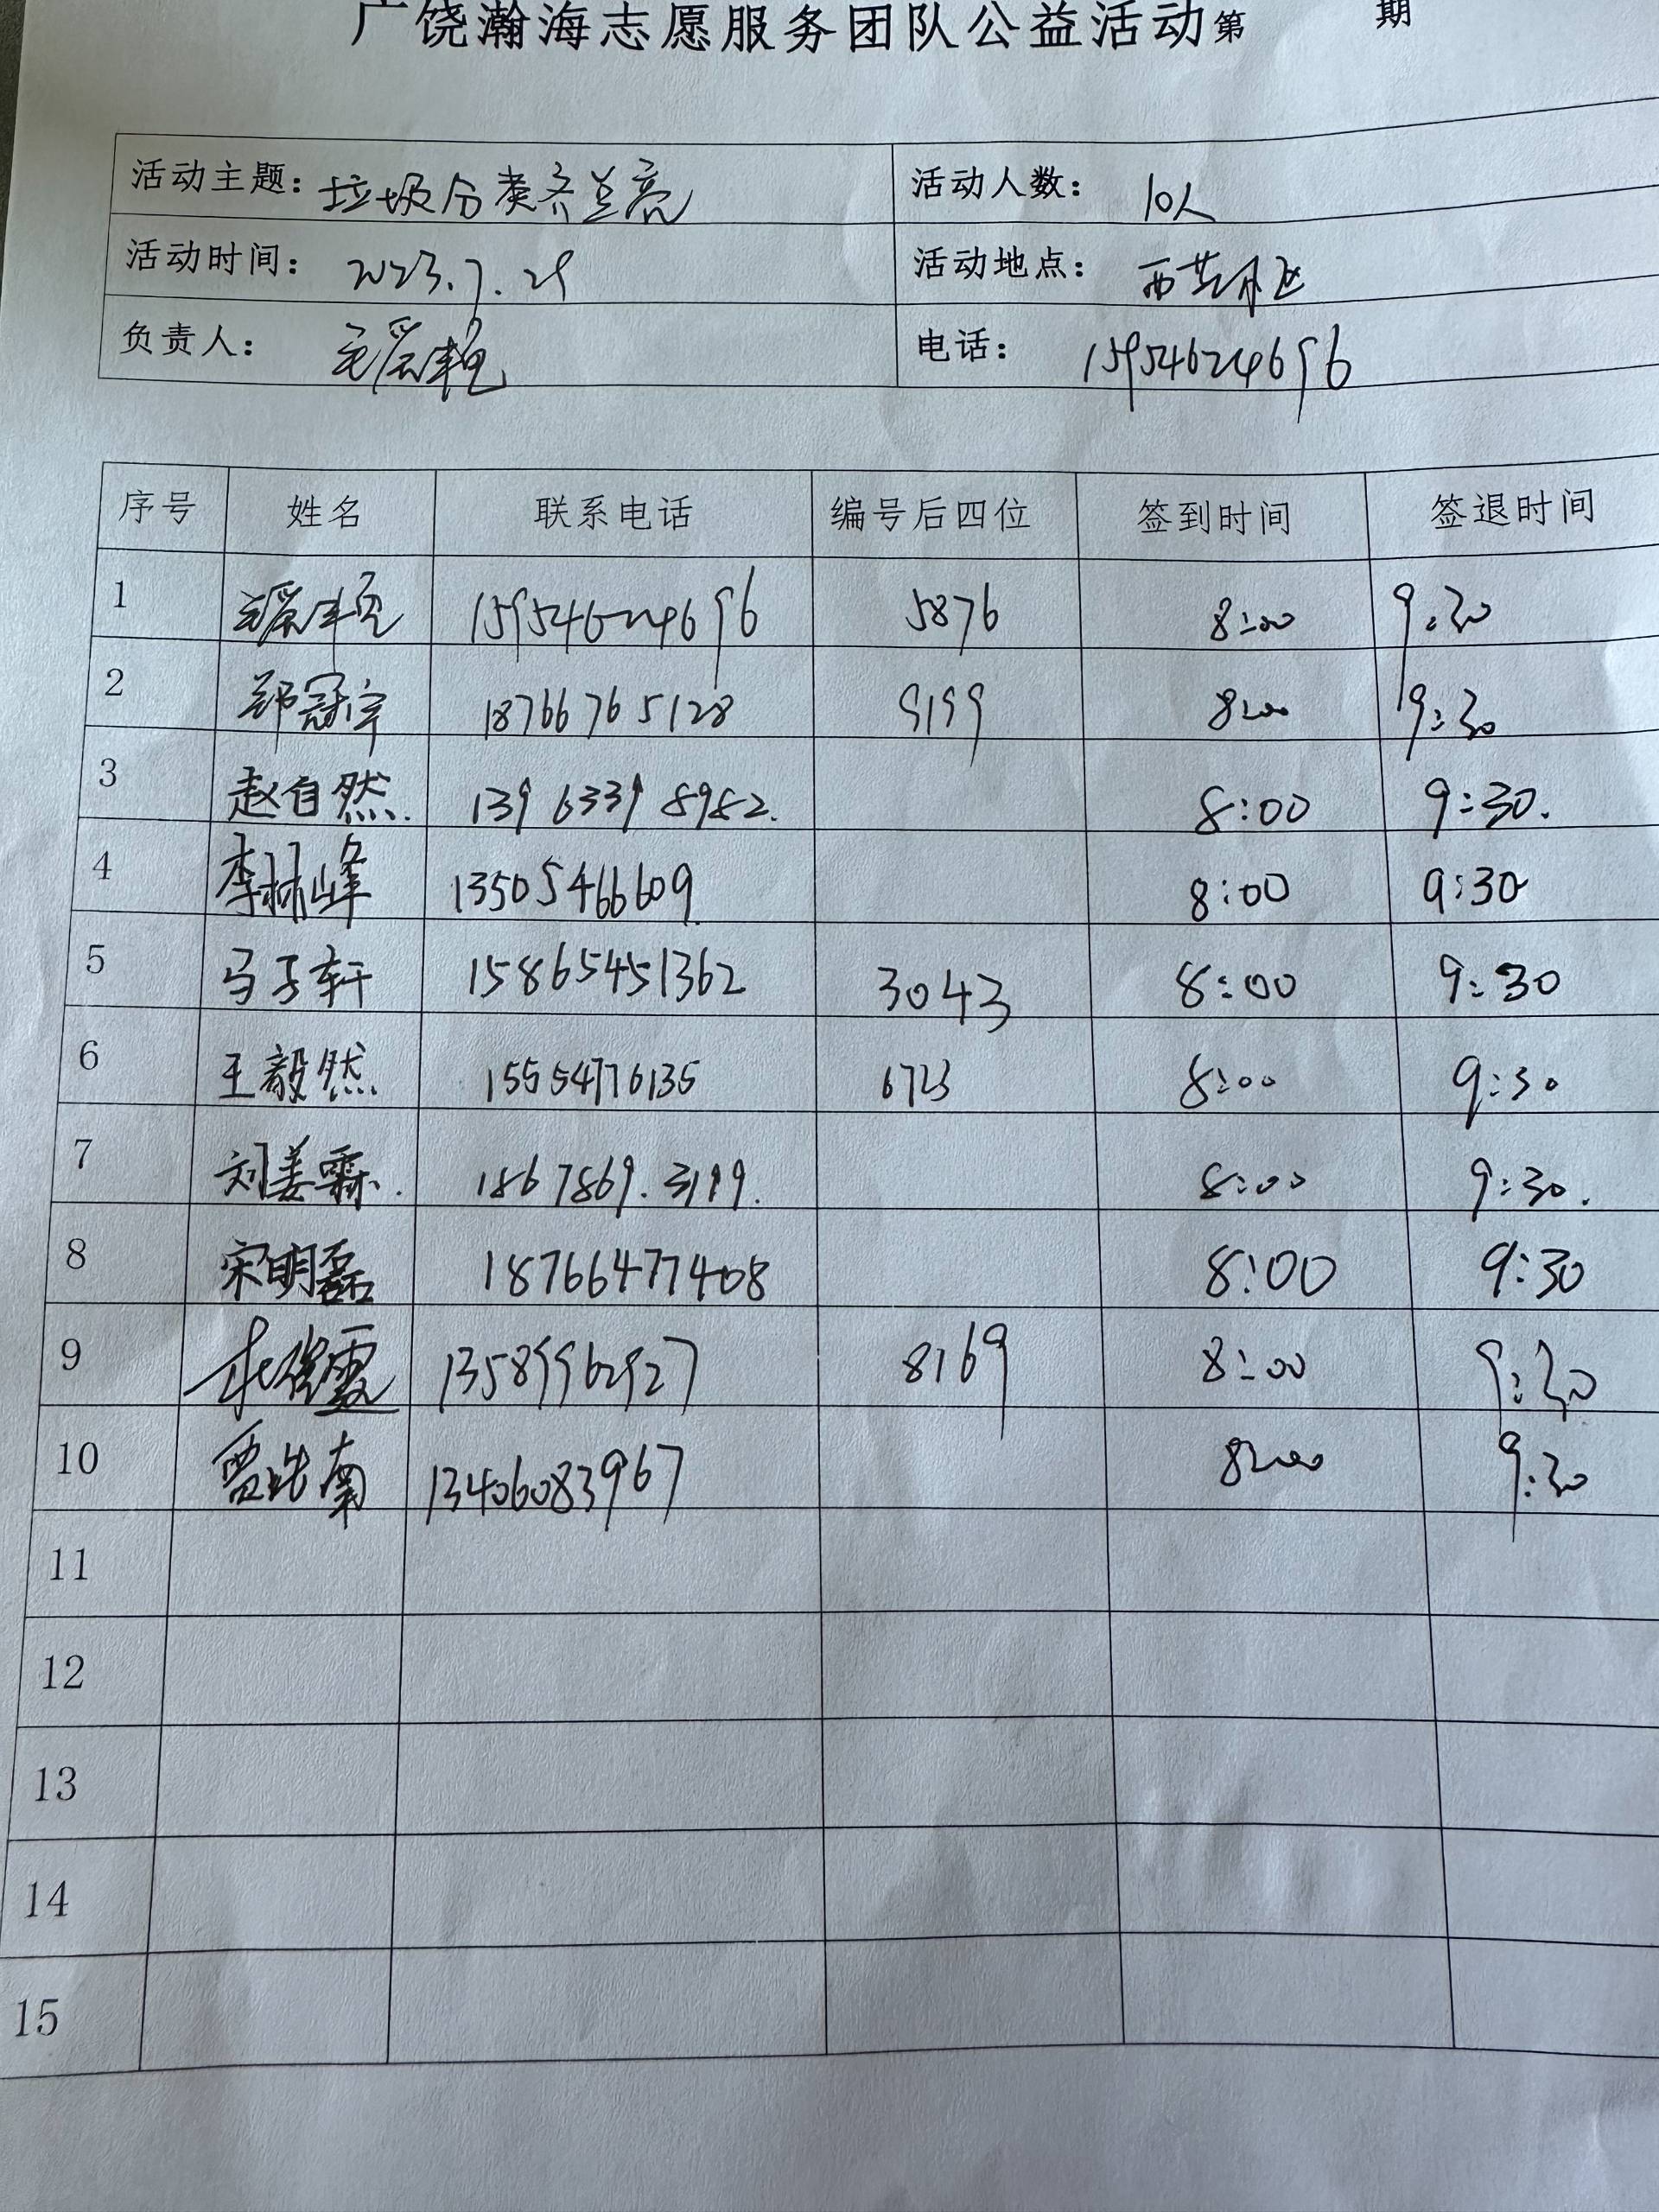 广饶瀚海志愿服务团队公益活动第 期
活动主题: 垃圾分类齐点亮 活动人数: 10人
活动时间: 2023.7.29 活动地点: 西苑社区
负责人: 电话: 15954624696
序号 姓名 联系电话 编号后四位 签到时间 签退时间
1 15954624696 5876 8:00 9:30
2 郑冠宇 18766765128 9199 8:00 9:30
3 赵自然. 139 6339 8982. 8:00 9:30.
4 李林峰 13505466609 8:00 9:30
5 马子轩 15865451362 3043 8:00 9:30
6 王毅然 15554776135 6723 8:00 9:30
7 刘姜霖. 1867869.3199. 8:00 9:30.
8 宋明磊 18766477408 8:00 9:30
9 13589962927 8169 8:00 9:30
10 13406083967 8:00 9:30
11
12
13
14
15